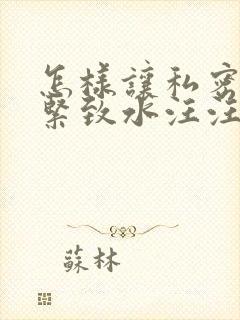 怎樣讓私密
緊致水汪汪
蘇林